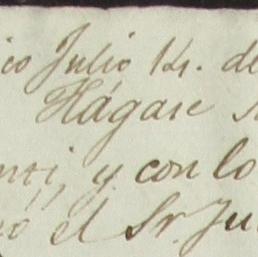 ico Julio 14. de
Hágase
, y con lo
el Sr. Ju